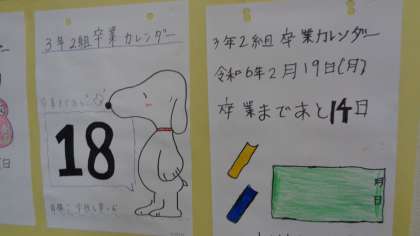 3年2組卒業カレンダー
18
3年2組卒業カレンダー
令和6年2月19日(月)
卒業まであと14日
月
日
日